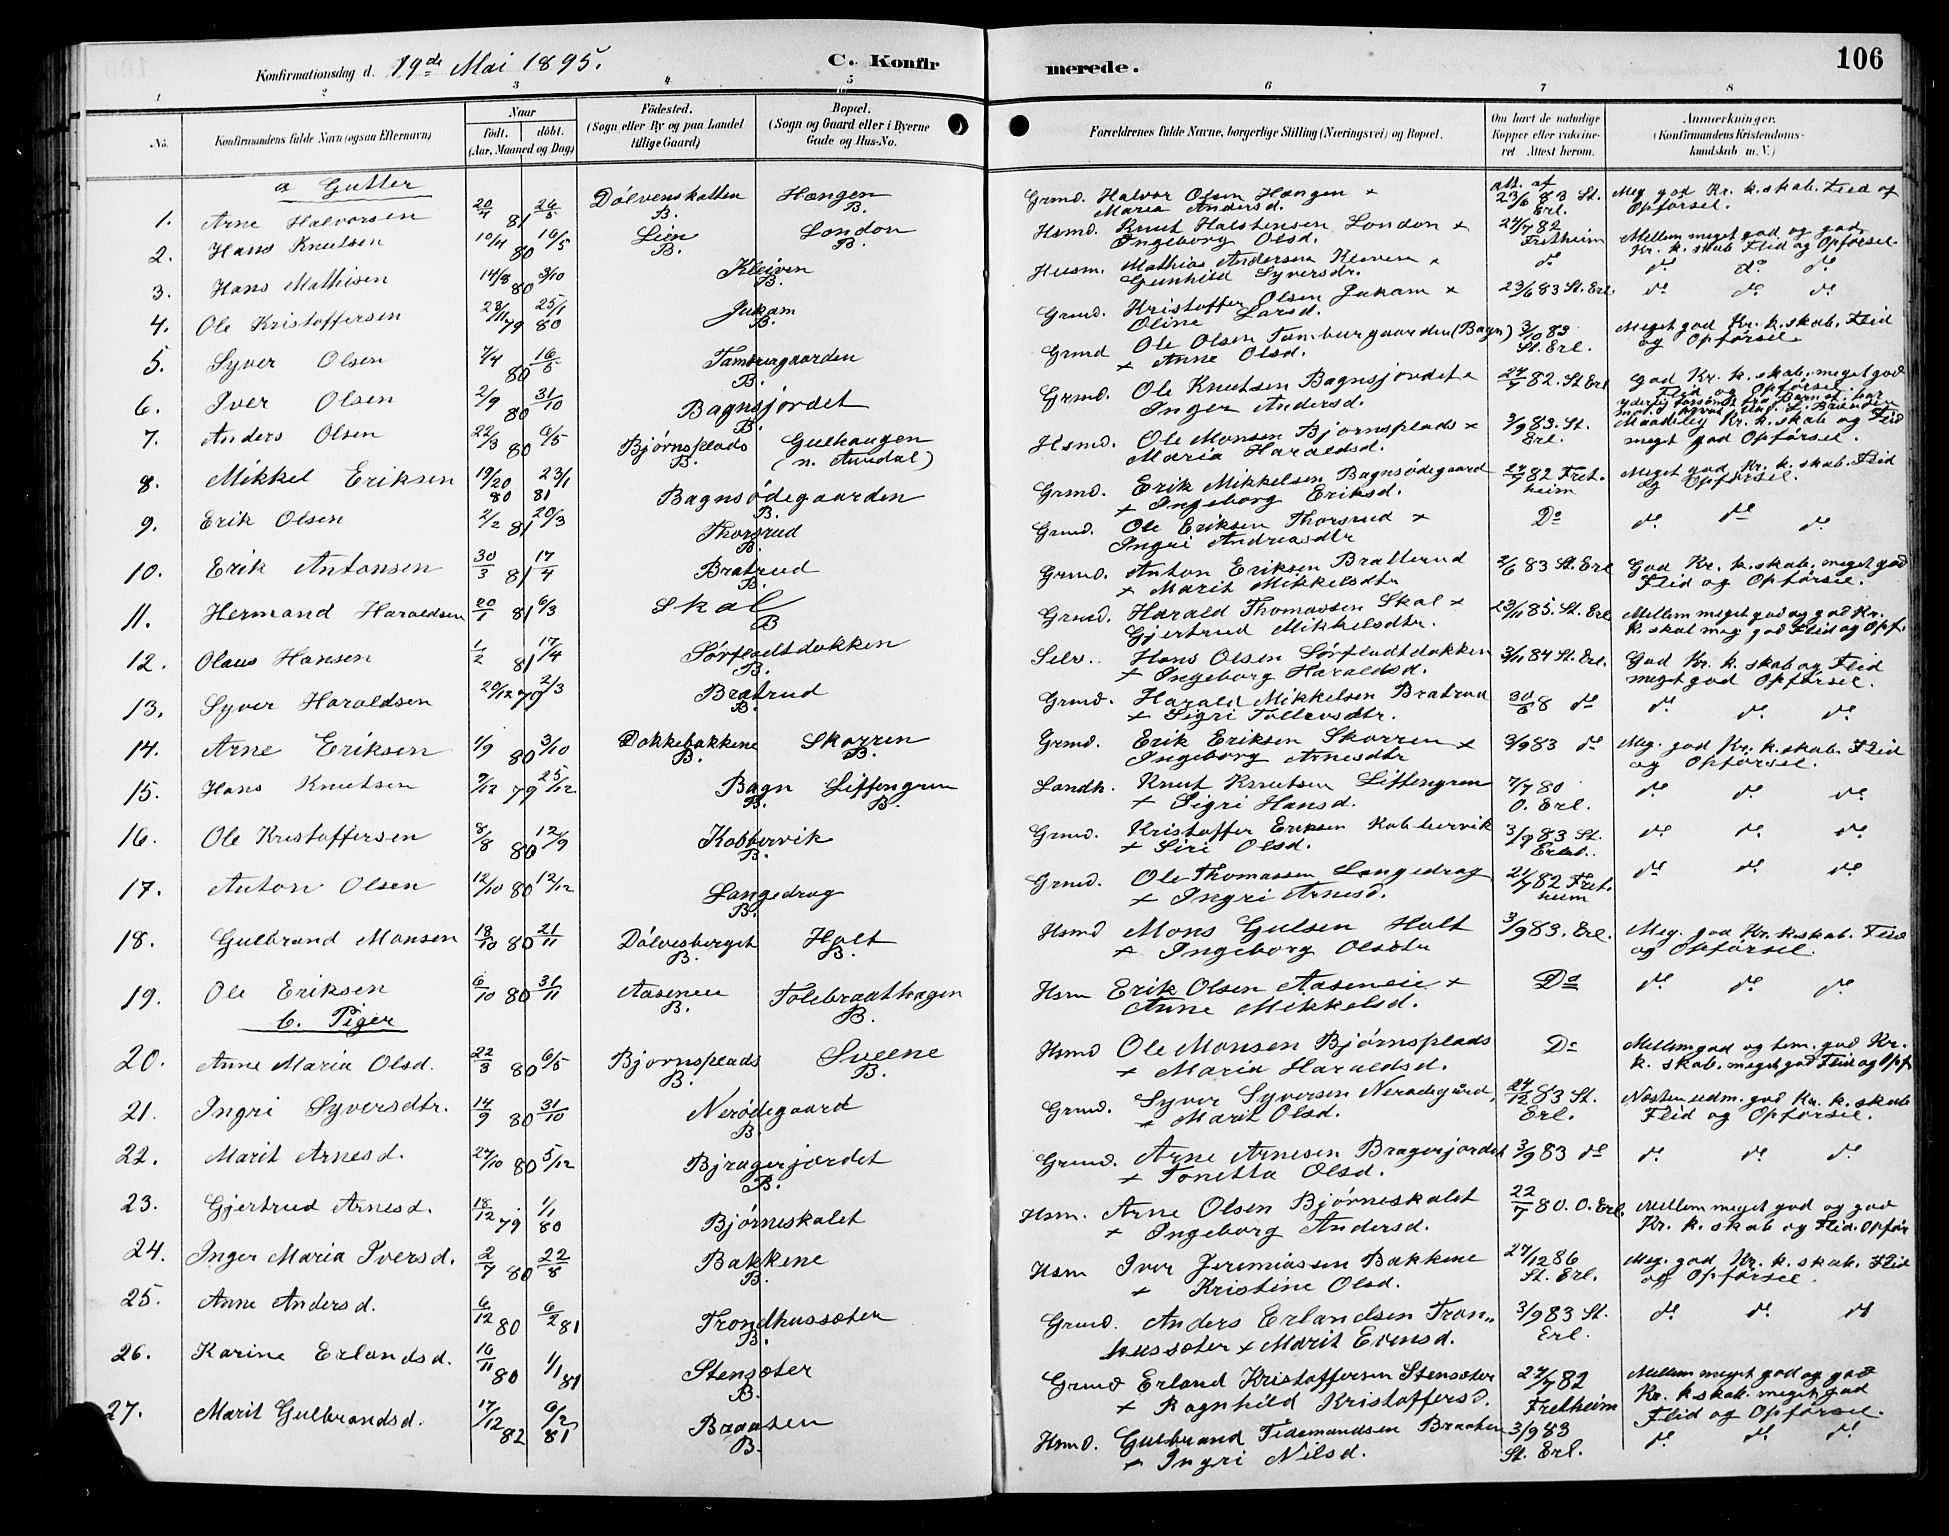 Konfirmationsdag d. 19de Mai 1895.
C. Konfirmerede.
106
1 2 3 4 5 6 7 8
No.
Konfirmandens fulde Navn (ogsaa Efternavn)
Naar
født. døbt.
(Aar, Maaned og Dag)
Fødested.
(Sogn eller By og paa Landet
tillige Gaard)
Bopæl.
(Sogn og Gaard eller i Byerne
Gade og Hus-No.
Forældrenes fulde Navne, borgerlige Stilling (Næringsvei) og Bopæl.
Om havt de naturlige
Kopper eller vaccineret
Attest herom.
Anmerkninger.
(Konfirmandens Kristendomskundskab
m. V.)
a Gutter
1. Arne Halvorsen 20/4 81 26/5 Dølvenskatten B. Hængen B. Grmd. Halvor Olsen Hængen + Maria Andersd. att. af 23/6 83 St. Erl. Meg. god Kr. k. skab. Flid og Opførsel.
2. Hans Knutsen 10/4 80 16/5 Lien B. London B. Hsmd. Knut Halstensen London + Ingeborg Olsd. 24/7 82 Fretheim Mellem meget god og god Kr. k. skab Flid og Opførsel
3. Hans Mathisen 14/8 80 3/10 Kleiven B. Husm. Mathias Andersen Kleven + Gunhild Syversdr. do do do do
4. Ole Kristoffersen 23/11 79 25/1 80 Jukam B. Grmd. Kristoffer Olsen Jukam + Oline Larsd. 23/6 83 St. Erl. do do do
5. Syver Olsen 7/4 80 16/5 Tamburgaarden B. Grmd Ole Olsen Tamburgaarden (Bagn) + Anne Olsd. 3/10 83 St. Erl. Meget god Kr. k. skab. Flid og Opførsel.
6. Iver Olsen 2/9 80 31/10 Bagnsjordet B. Grmd. Ole Knutsen Bagnsjordet + Inger Andersd. 24/7 82. St Erl God Kr. k. skab, meget god Flid og Opførsel.
7. Anders Olsen 22/3 80 6/5 Bjørnsplads B. Gulhaugen (n. Aurdal) Hsmd. Ole Monsen Bjørnsplads + Maria Haraldsd. 3/9 83. St. Erl. Maadelig Kr. k. skab og Flid meget god Opførsel.
8. Mikkel Eriksen 19/20 80 23/1 81 Bagnsødegaarden B. Grmd. Erik Mikkelsen Bagnsødegaard + Ingeborg Eriksd. 24/7 82 Fretheim Meget god Kr. k. skab. Flid og Opførsel.
9. Erik Olsen 2/2 81 20/3 Thorsrud B. Grmd. Ole Eriksen Thorsrud + Ingri Andreasdtr Do do do do
10. Erik Antonsen 30/3 81 17/4 Bratrud B. Grmd. Anton Eriksen Bratterud + Marit Mikkelsdtr 2/6 83 St. Erl God Kr. k. skab, meget god Flid og Opførsel.
11. Hermand Haraldsen 20/1 81 6/3 Skal B Grmd. Harald Thomassen Skal + Gjertrud Mikkelsdtr. 23/11 85. St. Erl Mellem meget god og god Kr. k. skab meg god Flid og Opf.
12. Olaus Hansen 1/2 81 17/4 Sørfladtdokken B. Selv. Hans Olsen Sørfladtdokken + Ingeborg Haraldsd. 3/11 84 St. Erl. God Kr. k. skab og Flid meget god Opførsel.
13. Syver Haraldsen 20/12 79 2/3 Bratrud B. Grmd. Harald Mikkelsen Bratrud + Sigri Tollevsdtr. 30/6 8 do do do do
14. Arne Eriksen 1/9 80 3/10 Dokkebakkene B. Skorren B. Grmd. Erik Eriksen Skorren + Ingeborg Arnesdtr 3/9 83 do Meg. god Kr. k. skab. Flid og Opførsel.
15. Hans Knutsen 9/12 79 25/12 Bagn B. Liffengren B. Landh. Knut Knutsen Liffengren + Sigri Hansd. 7/7 80 O. Erl. do do do
16. Ole Kristoffersen 8/8 80 12/9 Kobbervik B. Grmd. Kristoffer Eriksen Kobbervik + Siri Olsd. 3/9 83 St. Erl. do do do
17. Anton Olsen 12/10 80 12/12 Langedrag B. Grmd. Ole Thomassen Langedrag + Ingri Arnesd. 21/7 82 Fretheim do do do
18. Gulbrand Monsen 18/10 80 21/11 Dølvesberget B. Holt B. Hsmd Mons Gulsen Holt + Ingeborg Olsdtr 3/9 83. Erl. Meg. god Kr. k. skab. Flid og Opførsel.
19. Ole Eriksen 6/10 80 31/11 Aaseneie B. Tolebraathagen B. Hsm Erik Olsen Aaseneie + Anne Mikkelsd. Do do do do
b. Piger
20. Anne Maria Olsd. 22/3 80 6/5 Bjørnsplads B. Sveene B. Hsmd Ole Monsen Bjørnsplads + Maria Haraldsd. Do Mellem god og tem. god Kr. k. skab. meget god Flid og Opf
21. Ingri Syversdtr. 14/9 80 31/10 Nerødegaard B. Grmd. Syver Syversen Nerødegård, + Marit Olsd. 24/12 83 St. Erl. Næsten udm. god Kr. k. skab Flid og Opførsel.
22. Marit Arnesd. 24/10 80 5/12 Bjragerjordet B. Grmd. Arne Arnesen Bragerjordet + Tonetta Olsd. 3/9 83 do do do do
23. Gjertrud Arnesd. 18/12 79 1/1 80 Bjørneskalet Hsm. Arne Olsen Bjørneskalet + Ingeborg Andersd. 22/7 80. O. Erl. Mellem meget god og god Kr. k. skab og Flid. Opfør
24. Inger Maria Iversd. 2/7 80 22/8 Bakkene B. Hsm Iver Jeremiassen Bakkene + Kristine Olsd. 27/12 86 St. Erl. Meg. god Kr. k. skab. Flid og Opførsel.
25. Anne Andersd. 6/12 80 6/2 81 Trondhussæter B. Grmd. Anders Erlandsen Tronhussæter + Marit Evensd. 3/9 83 St. Erl. do do do
26. Karine Erlandsd. 16/11 80 1/1 81 Stensæter B. Grmd Erland Kristoffersen Stensæter + Ragnhild Kristoffersd. 24/7 82 Fretheim Mellem meget god og god Kr. k. skab. meget god Flid og Opførsel.
27. Marit Gulbrandsd. 17/12 82 6/2 81 Braaten B. Hsmd. Gulbrand Tidemandsen Braaten + Ingri Nilsd. 3/9 83 St. Erl. do do do